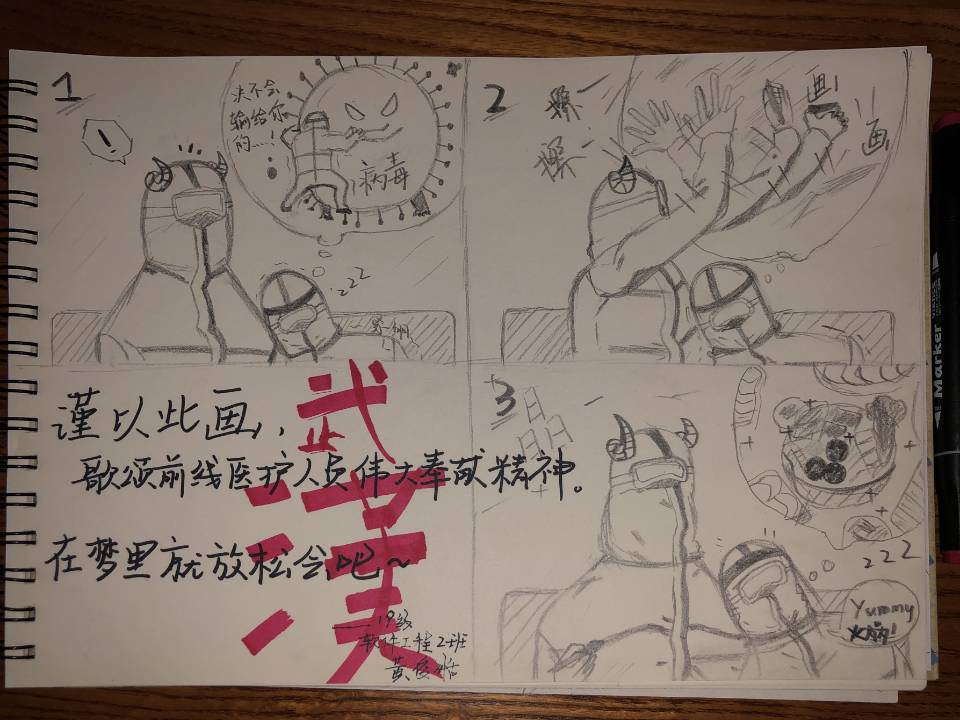 1
!
决不会
输给你
的……!
病毒
zzz
2
擦
擦
画
画
谨以此画,
歌颂前线医护人员伟大奉献精神。
在梦里就放松会吧~
武汉
——19级
软件工程2班
3
晶
晶
zzz
Yummy
Marker